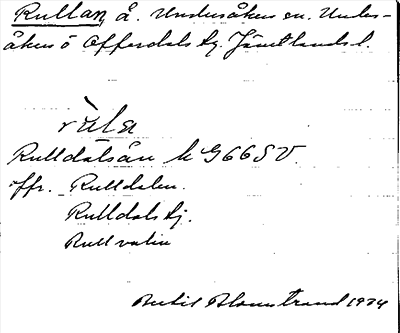 Rullan, å. Undersåkers sn. Unders-
åkers o Offerdals tg. Jämtlands l.
ràla
Rulldalsån k G66SV.
jfr. Rulldalen.
Rulldals tj.
Rullvalen
Bertil Blomstrand 1934